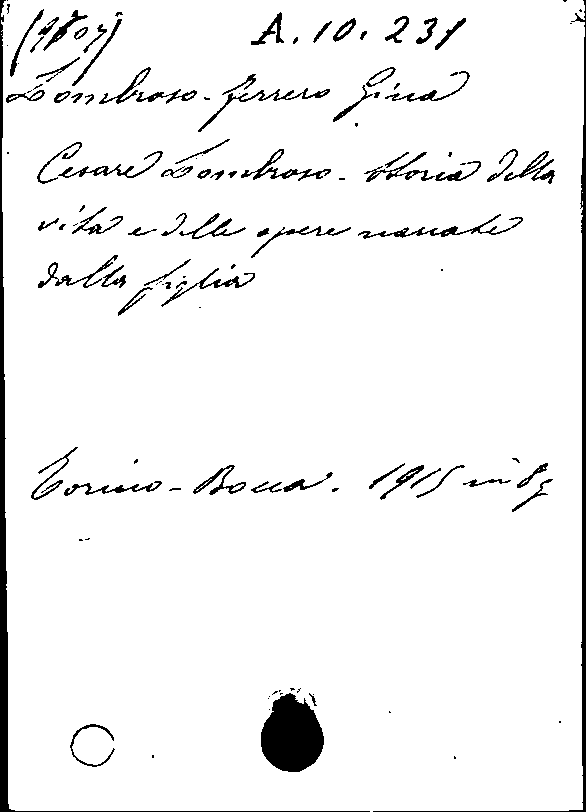 A.10.231
Lombroso-Ferrero Gina
Cesare Lombroso - Storia della
vita e delle opere narrate
dalla figlia
Torino - Bocca. 1915 in 8º